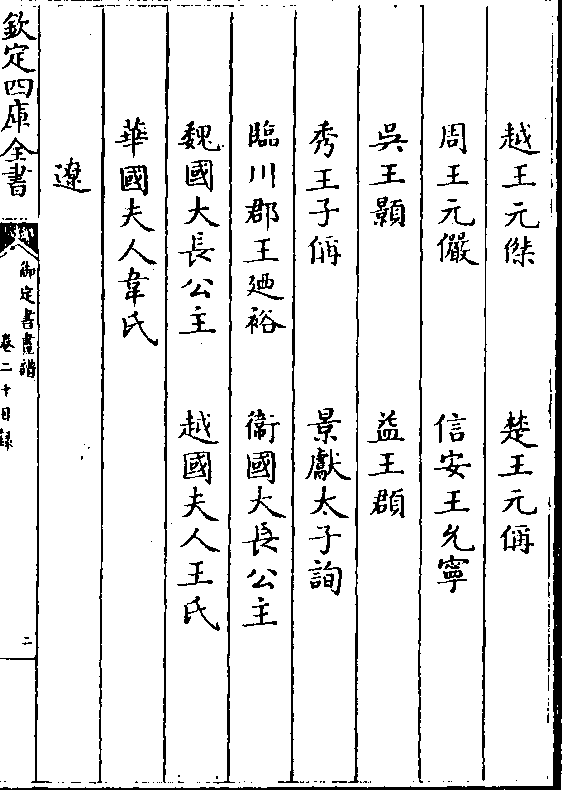 越王元傑　楚王元偁
周王元儼　信安王允寧
吳王顥　益王頵
秀王子偁　景獻太子詢
臨川郡王廼裕　衞國大長公主
魏國大長公主　越國夫人王氏
華國夫人韋氏
遼
欽定四庫全書
御定書畫譜
卷二十目錄
二